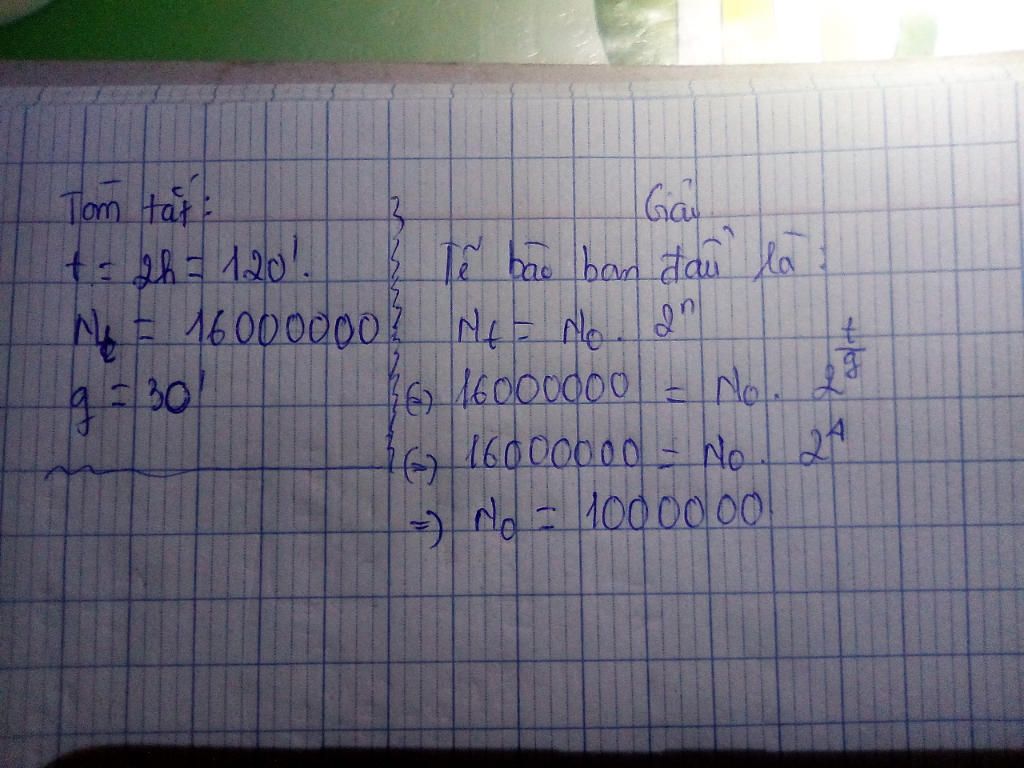 Tóm tắt:
t = 2h = 120'.
Nt = 16000000
g = 30'
Giải
Tế bào ban đầu là:
Nt = No. 2^n
(=) 16000000 = No. 2^(t/g)
(=) 16000000 = No. 2^4
=) No = 1000000